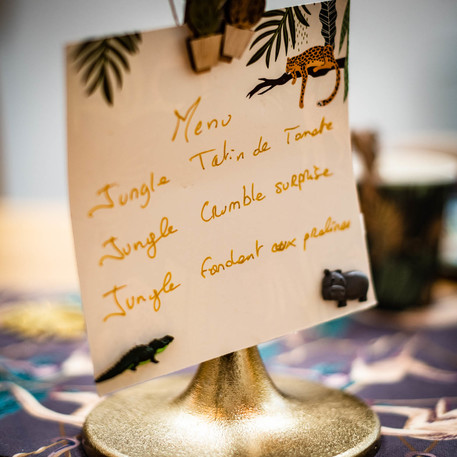 Menu
Jungle Tatin de Tomate
Jungle Crumble surprise
Jungle Fondant aux pralines